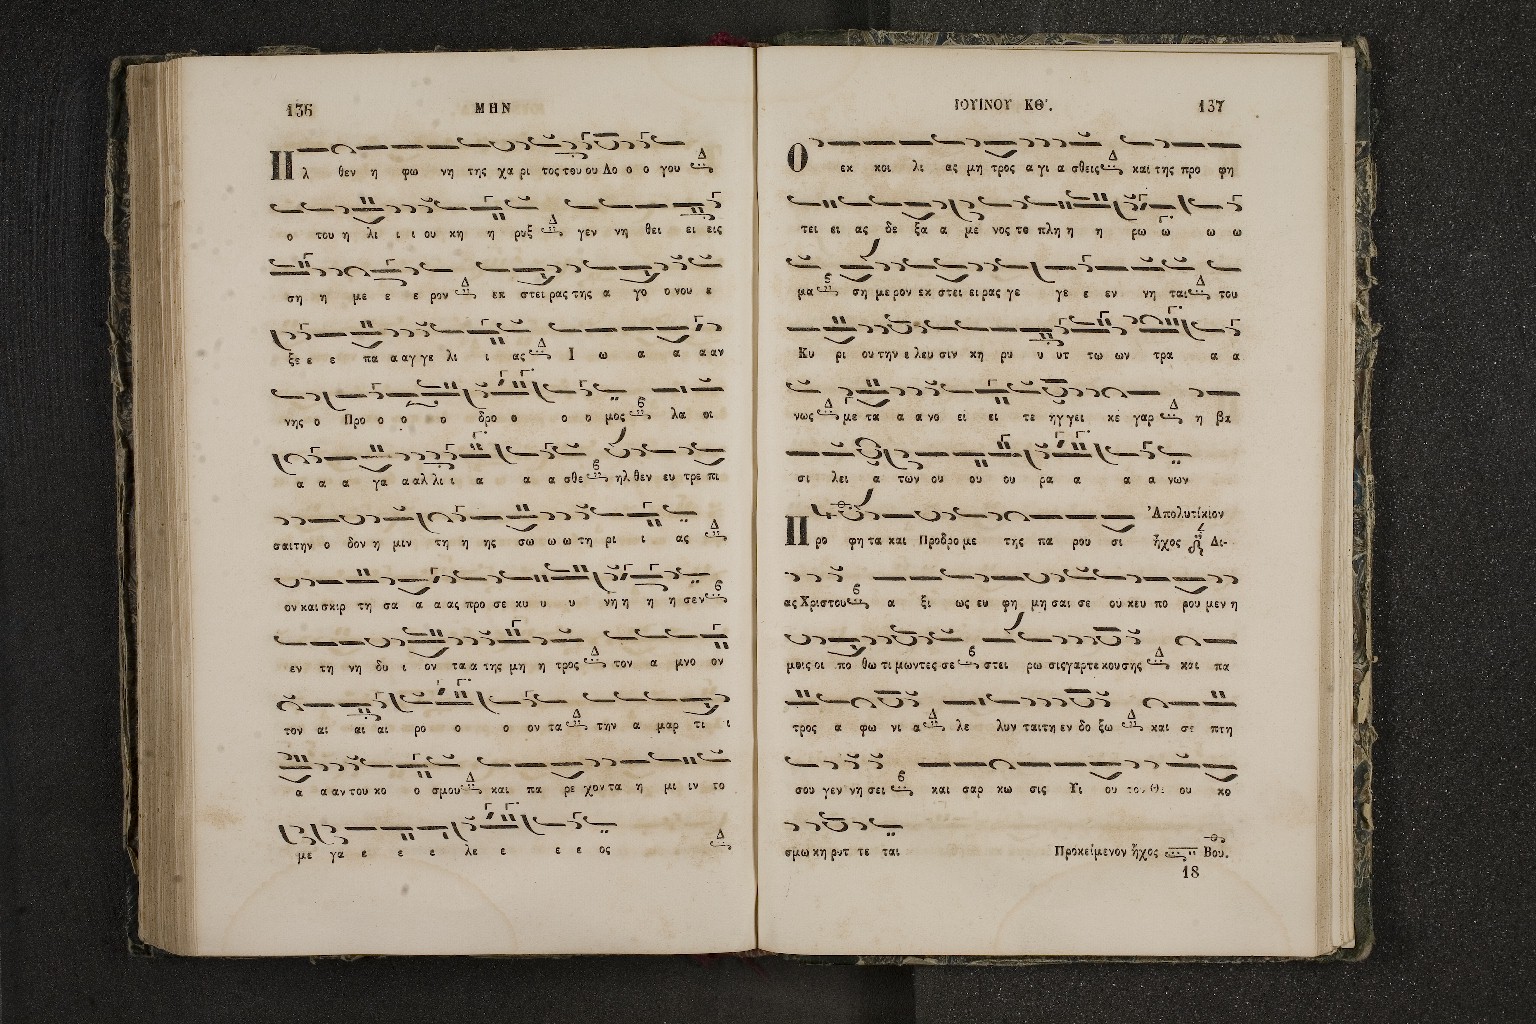 136 ΜΗΝ
Πλ θεν η φω νη της χα ρι τος του ου Λο ο ο γου
ο του η λι ι ι ου κη η ρυξ γεν νη θει ει εις
ση η με ε ε ρον εκ στει ρας της α γο ο νου ε
ξε ε ε πα α αγ γε λι ι ας Ι ω α α αν
νης ο Προ ο ο ο δρο ο ο ο μος λα οι
α α α γα α αλ λι ι α α α σθε ηλ θεν ευ τρε πι
σαι την ο δον η μιν τη η ης σω ω ω τη ρι ι ας
ον και σκιρ τη σα α α ας προ σε κυ υ υ νη η η η σεν
εν τη νη δυ ι ον τα α της μη η τρος τον α μνο ον
τον αι αι αι ρο ο ο ον τα την α μαρ τι ι
α α αν του κο ο σμου και πα ρε χον τα η μι ιν το
με γα ε ε ε λε ε ε ε ος
ΙΟΥΙΝΟΥ ΚΘ΄. 137
Ο εκ κοι λι ας μη τρος α γι α σθεις και της προ φη
τει ει ας δε ξα α με νος το πλη η η ρω ω ω ω
μα ση με ρον εκ στει ει ρας γε γε ε εν νη ται του
Κυ ρι ου την ε λευ σιν κη ρυ υ υτ τω ων τρα α α
νως με τα α α νο εί ει τε ηγ γει κε γαρ η βα
σι λει α των ου ου ου ρα α α α νων
Προ φη τα και Προδρο με της πα ρου σι Ἀπολυτίκιον ἦχος Δι-
ας Χριστου α ξι ως ευ φη μη σαι σε ου κευ πο ρου μεν η
μεις οι πο θω τι μωντες σε στει ρω σις γαρ τε κουσης και πα
τρος α φω νι α λε λυν ται τη εν δο ξω και σε πτη
σου γεν νη σει και σαρ κω σις Υι ου του Θε ου κο
σμω κη ρυτ τε ται Προκείμενον ἦχος Βου.
18